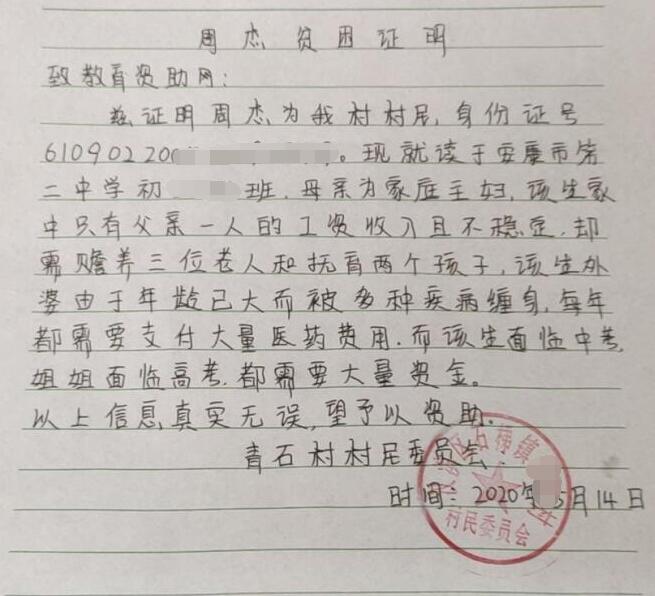 周杰贫困证明
致教育资助网：
兹证明周杰为我村村民，身份证号
610902200。现就读于安康市第
二中学初班，母亲为家庭主妇，该生家
中只有父亲一人的工资收入且不稳定，却
需赡养三位老人和抚育两个孩子，该生外
婆由于年龄已大而被多种疾病缠身，每年
都需要支付大量医药费用，而该生面临中考，
姐姐面临高考，都需要大量资金。
以上信息真实无误，望予以资助。
青石村村民委员会
时间：2020年5月14日
区石梯镇
村民委员会